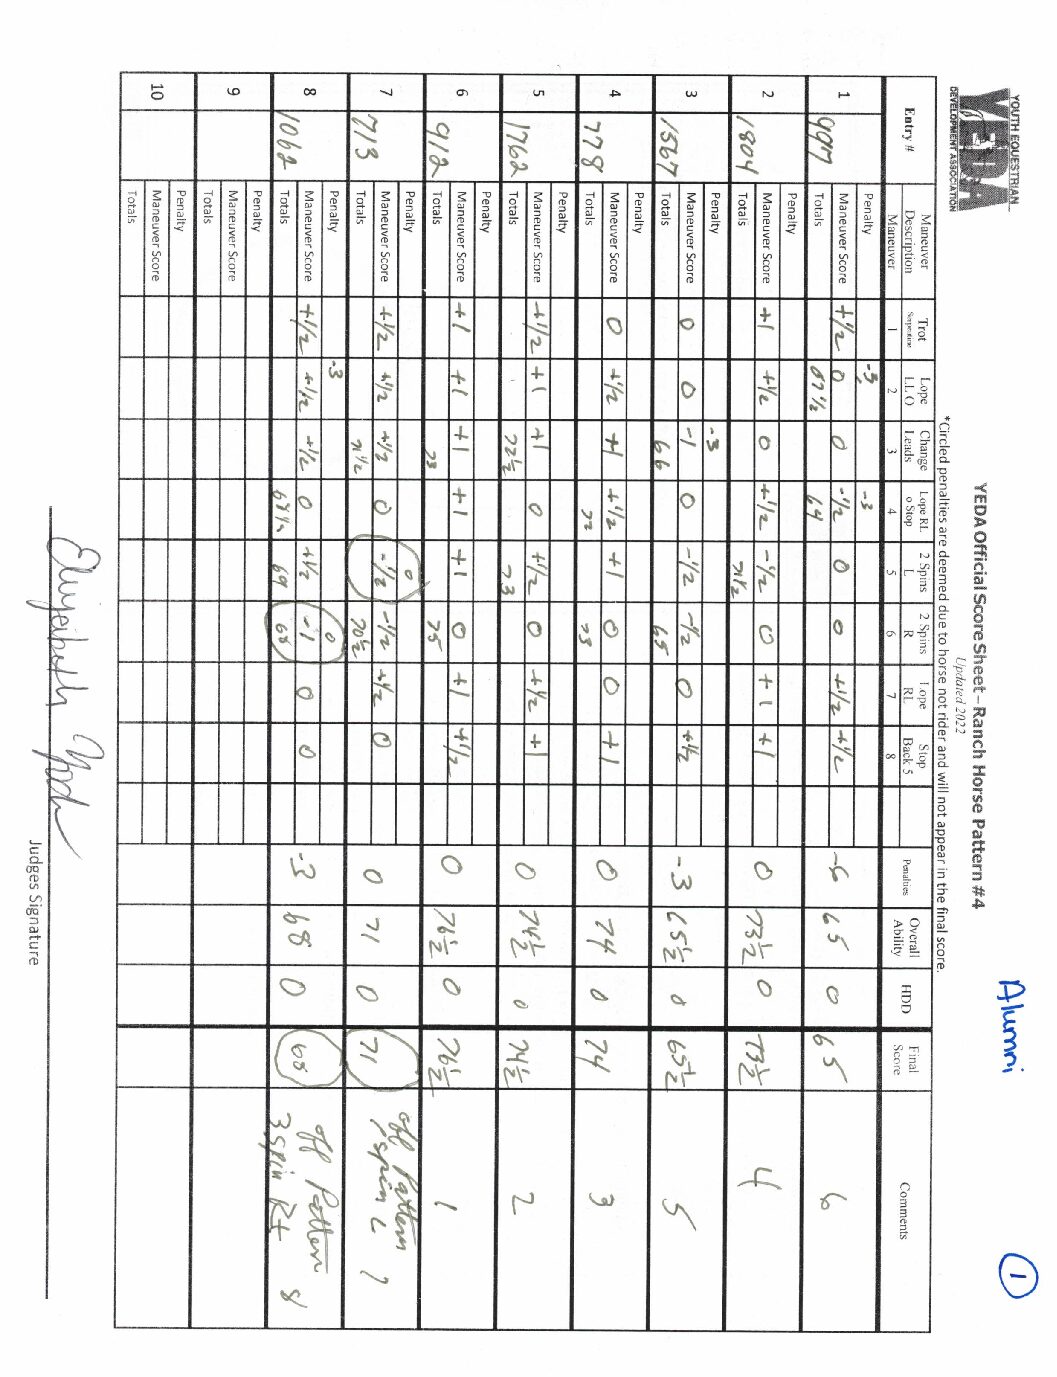 YOUTH EQUESTRIAN
YEDA
DEVELOPMENT ASSOCIATION
Alumni
1
YEDA Official Score Sheet – Ranch Horse Pattern #4
Updated 2022
*Circled penalties are deemed due to horse not rider and will not appear in the final score.
Entry # Maneuver Description Trot Serpentine Lope LL O Change Leads Lope RL o Stop 2 Spins L 2 Spins R Lope RL Stop Back 5 Penalties Overall Ability HDD Final Score Comments
Maneuver 1 2 3 4 5 6 7 8
1 Penalty -3 -3
Maneuver Score +1/2 0 0 -1/2 0 0 +1/2 +1/2 -6 65 0 65 6
Totals 67 1/2 64
2 1804 Penalty
Maneuver Score +1 +1/2 0 +1/2 -1/2 0 +1 +1 0 73 1/2 0 73 1/2 4
Totals 71 1/2
3 1567 Penalty -3
Maneuver Score 0 0 -1 0 -1/2 -1/2 0 +1/2 -3 65 1/2 0 65 1/2 5
Totals 66 65
4 778 Penalty
Maneuver Score 0 +1/2 +1 +1/2 +1 0 0 +1 0 74 0 74 3
Totals 72 73
5 1762 Penalty
Maneuver Score +1/2 +1 +1 0 +1/2 0 +1/2 +1 0 74 1/2 0 74 1/2 2
Totals 72 1/2 73
6 912 Penalty
Maneuver Score +1 +1 +1 +1 +1 0 +1 +1/2 0 76 1/2 0 76 1/2 1
Totals 73 75
7 713 Penalty 0 off Pattern
Maneuver Score +1/2 +1/2 +1/2 0 -1/2 -1/2 +1/2 0 0 71 0 71 1 spin L 7
Totals 71 1/2 70 1/2
8 1062 Penalty -3 0 off Pattern
Maneuver Score +1/2 +1/2 +1/2 0 +1/2 -1 0 0 -3 68 0 68 3 spin Rt 8
Totals 68 1/2 69 68
9 Penalty
Maneuver Score
Totals
10 Penalty
Maneuver Score
Totals
Judges Signature